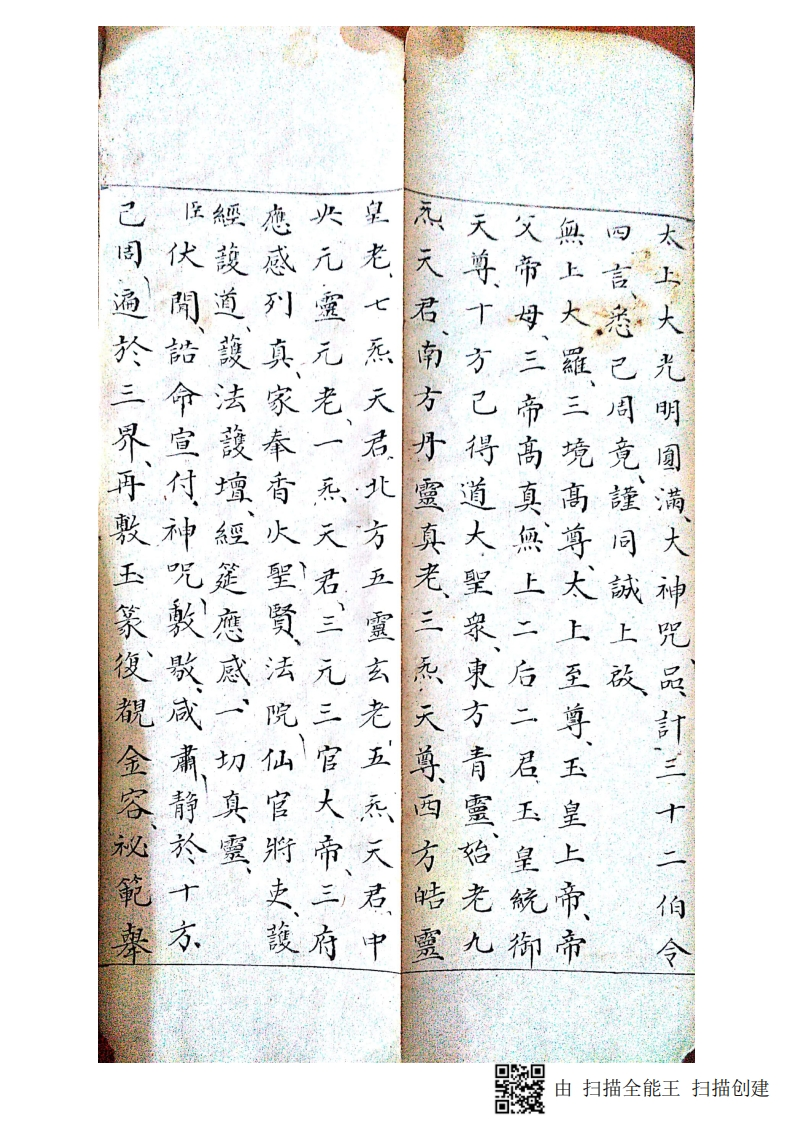 太上大光明圓滿、大神咒品、計三十二伯令
四言、悉已周竟、謹同誠上啟、
無上大羅、三境高尊、太上至尊、玉皇上帝、帝
父帝母、三帝高真、無上二后二君、玉皇統御
天尊、十方已得道大聖衆、東方青靈、始老九
炁、天君、南方丹靈真老、三炁、天尊、西方皓靈
皇老、七炁天君、北方五靈玄老五炁、天君、中
央元靈元老、一炁、天君、三元三官大帝、三府
應感列真、家奉香火聖賢、法院仙官將吏、護
經護道、護法護壇、經筵應感、一切真靈、
臣伏聞、誥命宣付、神咒、敷敭、咸肅、靜於十方、
已周、遍於三界、再敷玉篆、復覩金容、祕範舉
由 扫描全能王 扫描创建